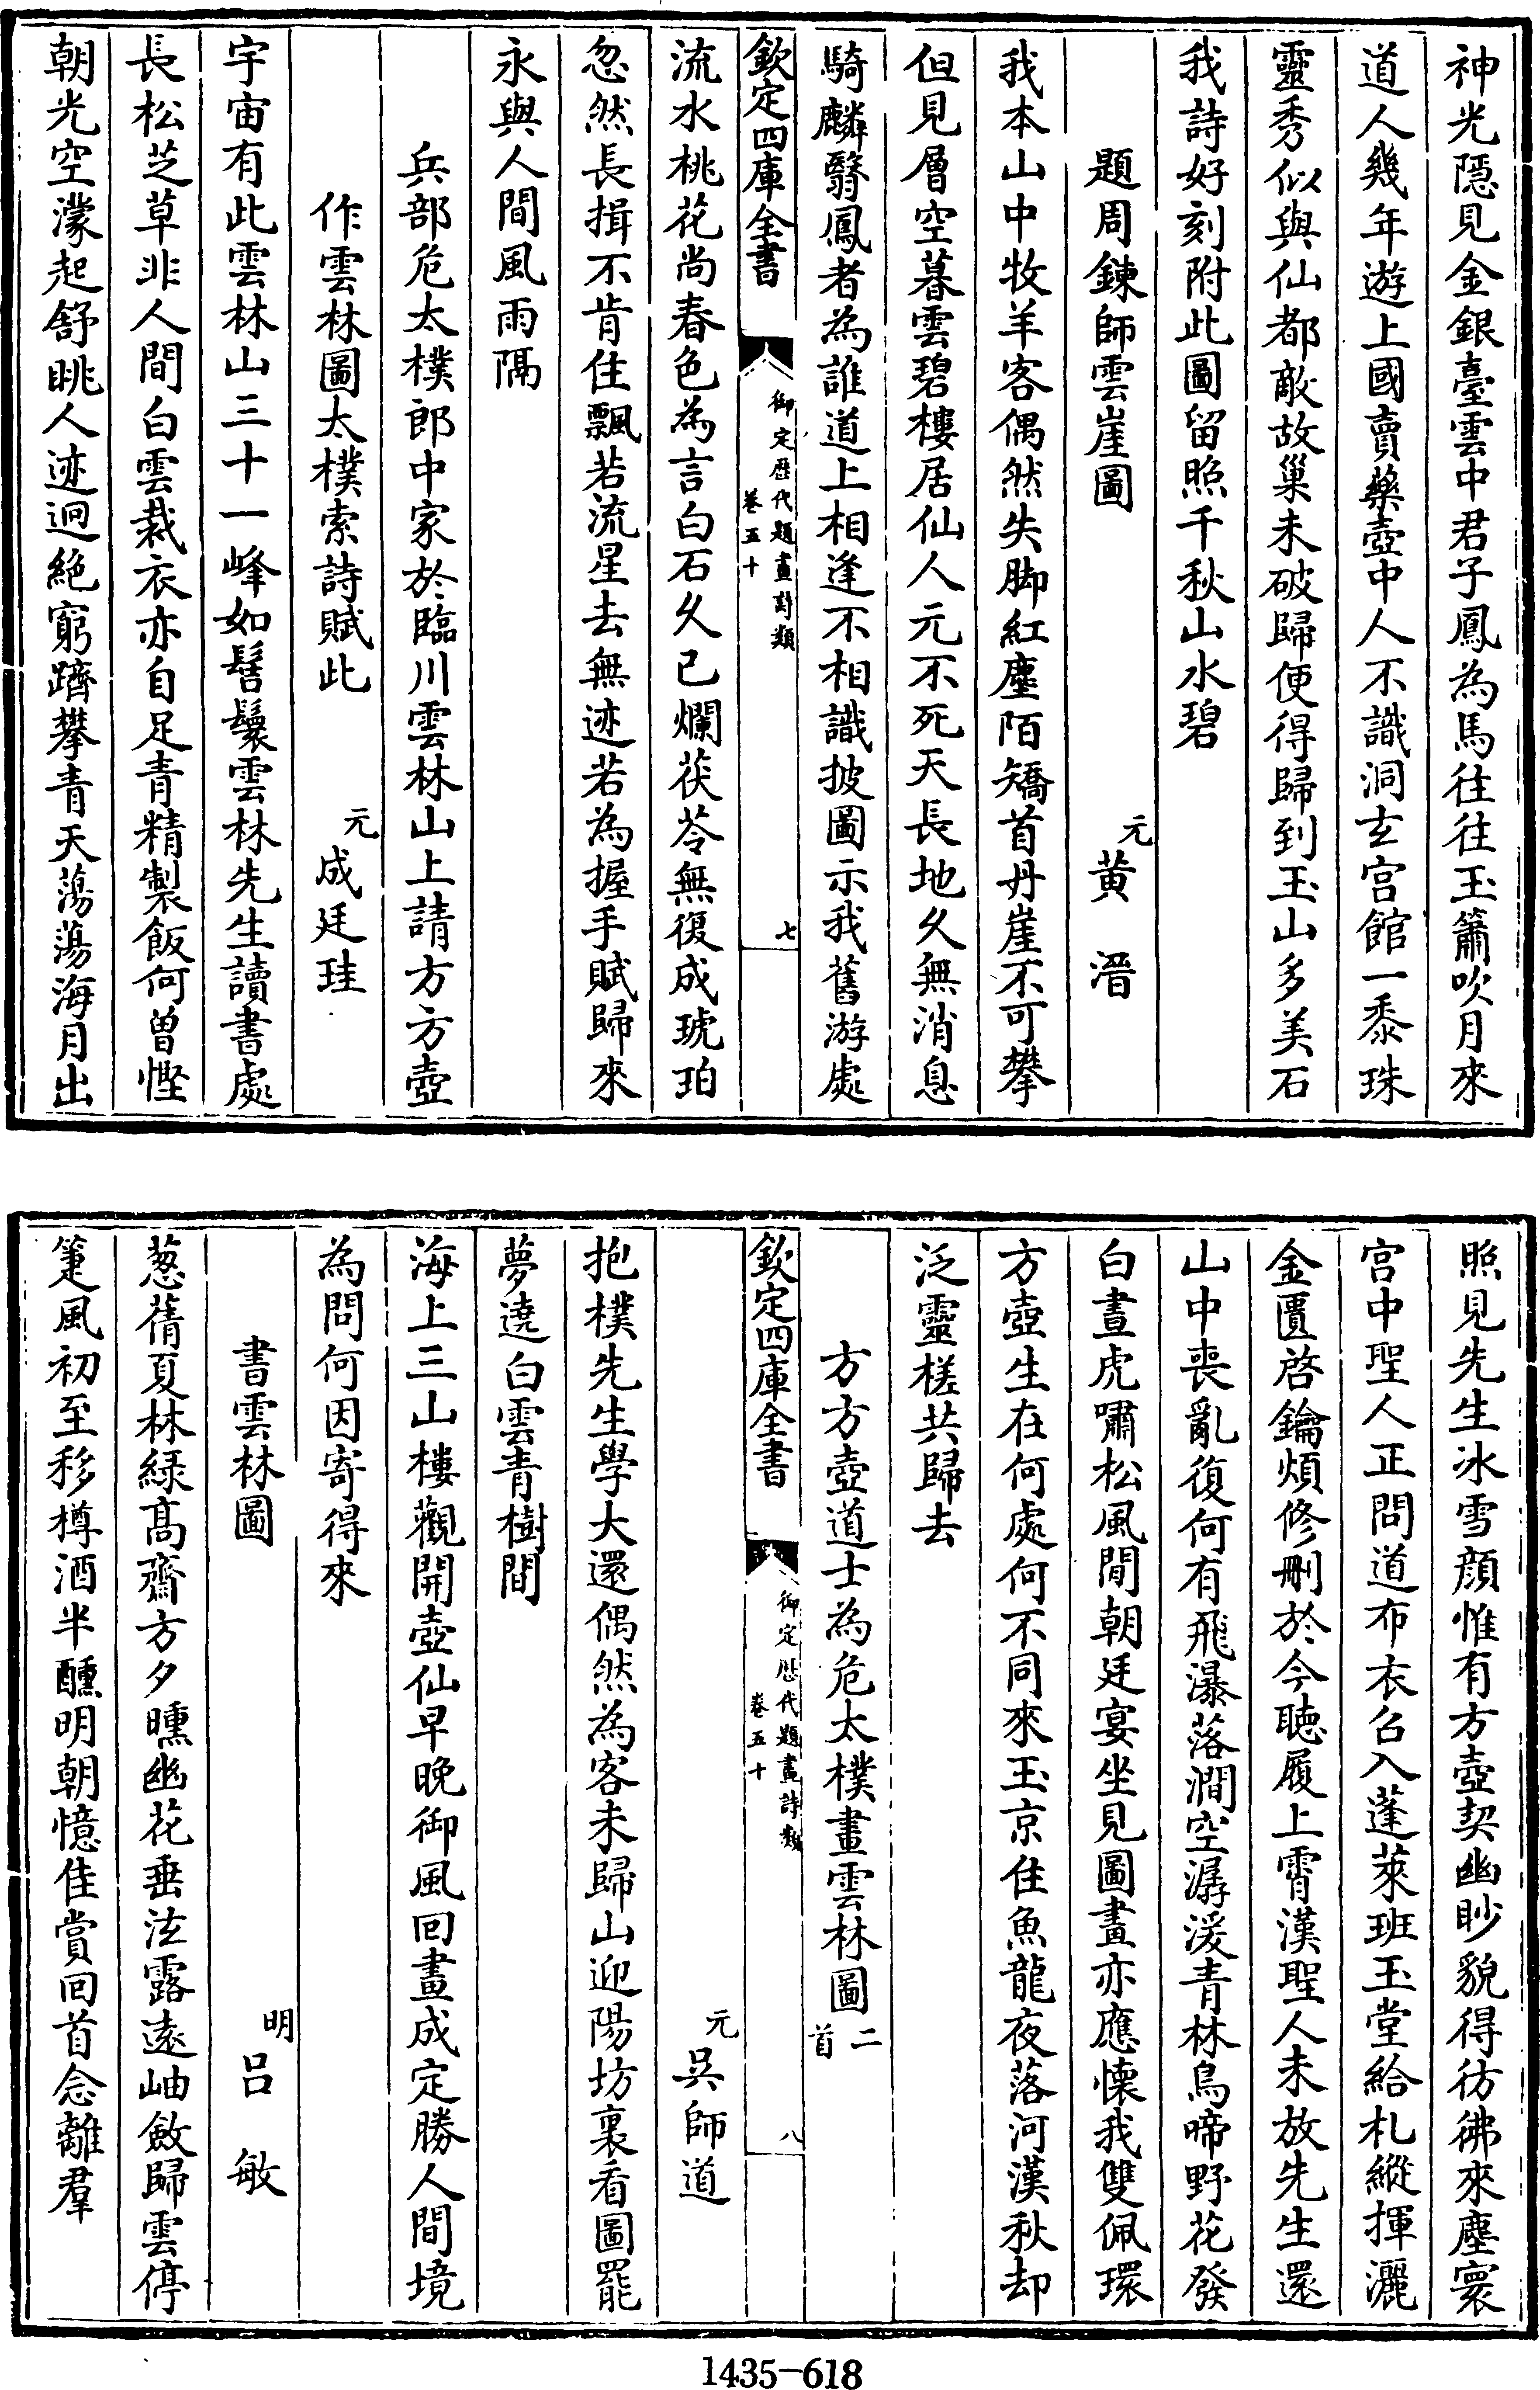 神光隱見金銀臺雲中君子鳳為馬往往玉簫吹月來
道人幾年遊上國賣藥壺中人不識洞玄宫館一黍珠
靈秀似與仙都敵故巢未破歸便得歸到玉山多美石
我詩好刻附此圖留照千秋山水碧
題周鍊師雲崖圖
元黄溍
我本山中牧羊客偶然失脚紅塵陌矯首丹崖不可攀
但見層空暮雲碧樓居仙人元不死天長地久無消息
騎麟翳鳳者為誰道上相逢不相識披圖示我舊游處
欽定四庫全書
御定歷代題畫詩類
卷五十
七
流水桃花尚春色為言白石久已爛茯苓無復成琥珀
忽然長揖不肯住飄若流星去無迹若為握手賦歸來
永與人間風雨隔
兵部危太樸郎中家於臨川雲林山上請方方壺
作雲林圖太樸索詩賦此
元成廷珪
宇宙有此雲林山三十一峰如髻鬟雲林先生讀書處
長松芝草非人間白雲裁衣亦自足青精製飯何曾慳
朝光空濛起舒眺人迹迥絶窮躋攀青天蕩蕩海月出
照見先生冰雪顔惟有方壺契幽眇貌得彷彿來塵寰
宫中聖人正問道布衣召入蓬萊班玉堂給札縱揮灑
金匱啓鑰煩修刪於今聽履上霄漢聖人未放先生還
山中喪亂復何有飛瀑落澗空潺湲青林烏啼野花發
白晝虎嘯松風閒朝廷宴坐見圖畫亦應懷我雙佩環
方壺生在何處何不同來玉京住魚龍夜落河漢秋却
泛靈槎共歸去
方方壺道士為危太樸畫雲林圖二首
欽定四庫全書
御定歷代題畫詩類
卷五十
八
元吳師道
抱樸先生學大還偶然為客未歸山迎陽坊裏看圖罷
夢遶白雲青樹間
海上三山樓觀開壺仙早晚御風回畫成定勝人間境
為問何因寄得來
書雲林圖
明吕敏
葱蒨夏林緑高齋方夕曛幽花垂泫露遠岫斂歸雲停
箑風初至移樽酒半醺明朝憶佳賞回首念離羣
1435-618